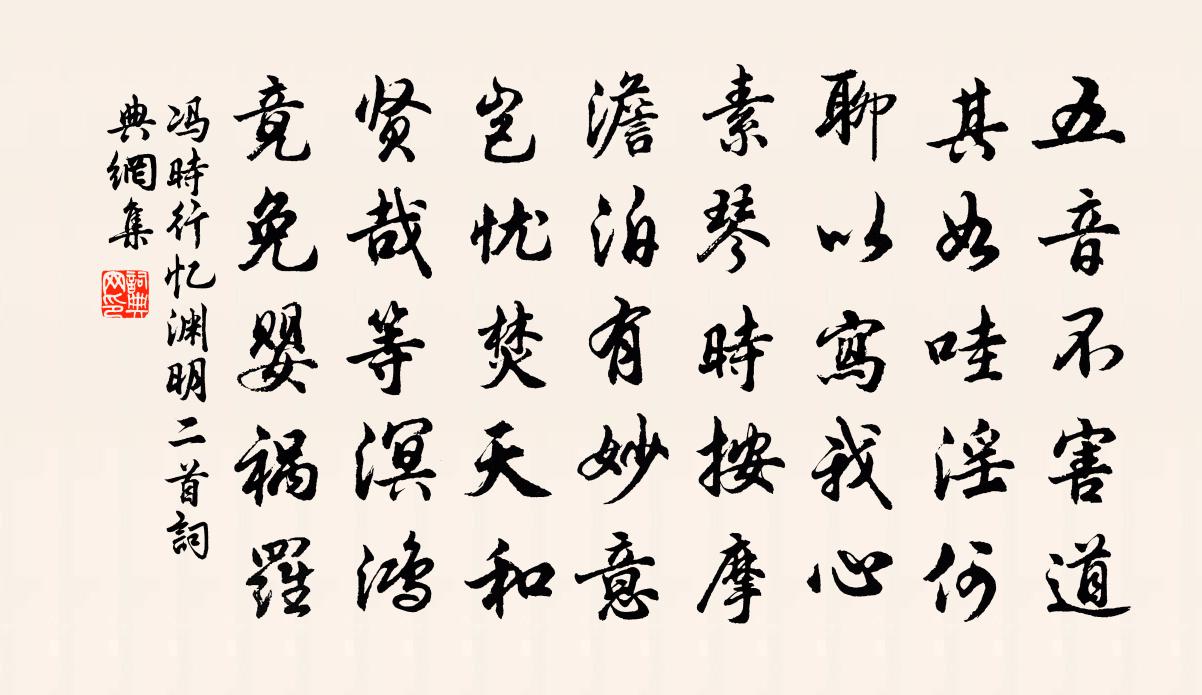 五音不害道
其如哇淫何
聊以寫我心
素琴時按摩
澹泊有妙意
岂忧焚天和
贤哉等溟鸿
竟免婴祸羅
冯時行忆渊明二首詞
典網集
詞典网印